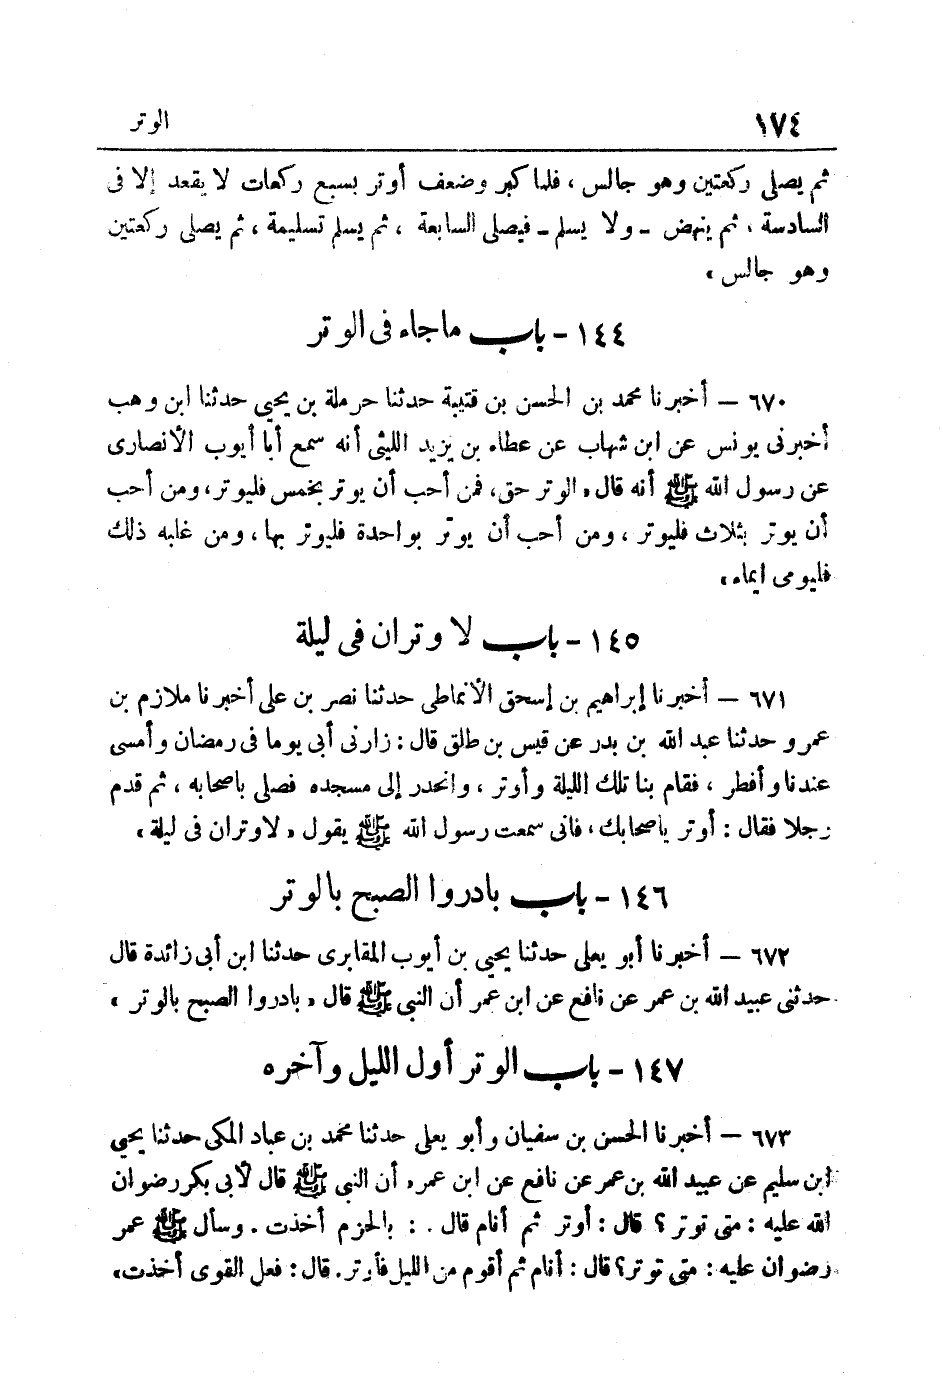 ١٧٤ الوتر
ثم يصلى ركعتين وهو جالس ، فلما كبر وضعف أوتر بسبع ركعات لا يقعد إلا فى
السادسة ، ثم ينهض ـ ولا يسلم ـ فيصلى السابعة ، ثم يسلم تسليمة ، ثم يصلى ركعتين
وهو جالس »
١٤٤ - باب ماجاء فى الوتر
٦٧٠ — أخبرنا محمد بن الحسن بن قتيبة حدثنا حرملة بن يحيى حدثنا ابن وهب
أخبرنى يونس عن ابن شهاب عن عطاء بن يزيد الليثى أنه سمع أبا أيوب الأنصارى
عن رسول الله ﷺ أنه قال « الوتر حق ، فمن أحب أن يوتر بخمس فليوتر ، ومن أحب
أن يوتر بثلاث فليوتر ، ومن أحب أن يوتر بواحدة فليوتر بها ، ومن غلبه ذلك
فليومى ايماء »
١٤٥ - باب لا وتران فى ليلة
٦٧١ — أخبرنا إبراهيم بن إسحق الأنماطى حدثنا نصر بن على أخبرنا ملازم بن
عمرو حدثنا عبد الله بن بدر عن قيس بن طلق قال : زارنى أبى يوما فى رمضان وأمسى
عندنا وأفطر ، فقام بنا تلك الليلة وأوتر ، وانحدر إلى مسجده فصلى باصحابه ، ثم قدم
رجلا فقال : أوتر باصحابك ، فانى سمعت رسول الله ﷺ يقول « لاوتران فى ليلة »
١٤٦ - باب بادروا الصبح بالوتر
٦٧٢ — أخبرنا أبو يعلى حدثنا يحيى بن أيوب المقابرى حدثنا ابن أبى زائدة قال
حدثنى عبيد الله بن عمر عن نافع عن ابن عمر أن النبى ﷺ قال « بادروا الصبح بالوتر »
١٤٧ - باب الوتر أول الليل وآخره
٦٧٣ — أخبرنا الحسن بن سفيان وأبو يعلى حدثنا محمد بن عباد المكى حدثنا يحيى
ابن سليم عن عبيد الله بن عمر عن نافع عن ابن عمر « أن النبى ﷺ قال لأبى بكر رضوان
الله عليه : متى توتر ؟ قال : أوتر ثم أنام قال . : بالحزم أخذت . وسأل ﷺ عمر
رضوان عليه : متى توتر ؟ قال : أنام ثم أقوم من الليل فأوتر . قال : فعل القوى أخذت »